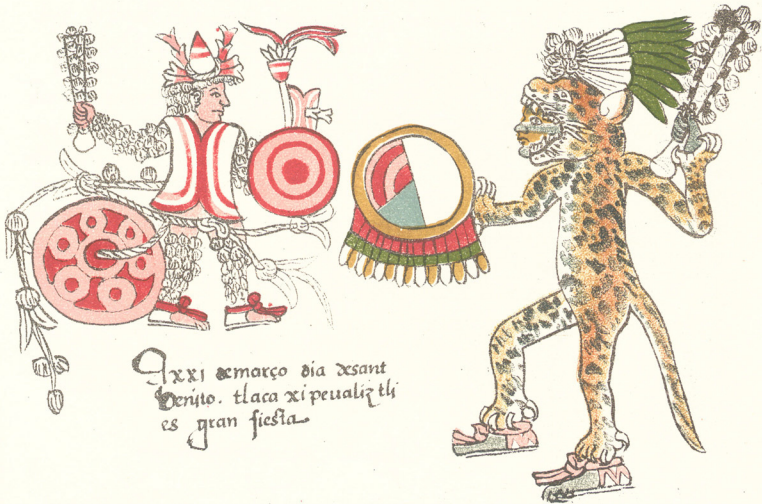 A xxi de março dia de sant
benito. tlaca xipeualiztli
es gran fiesta